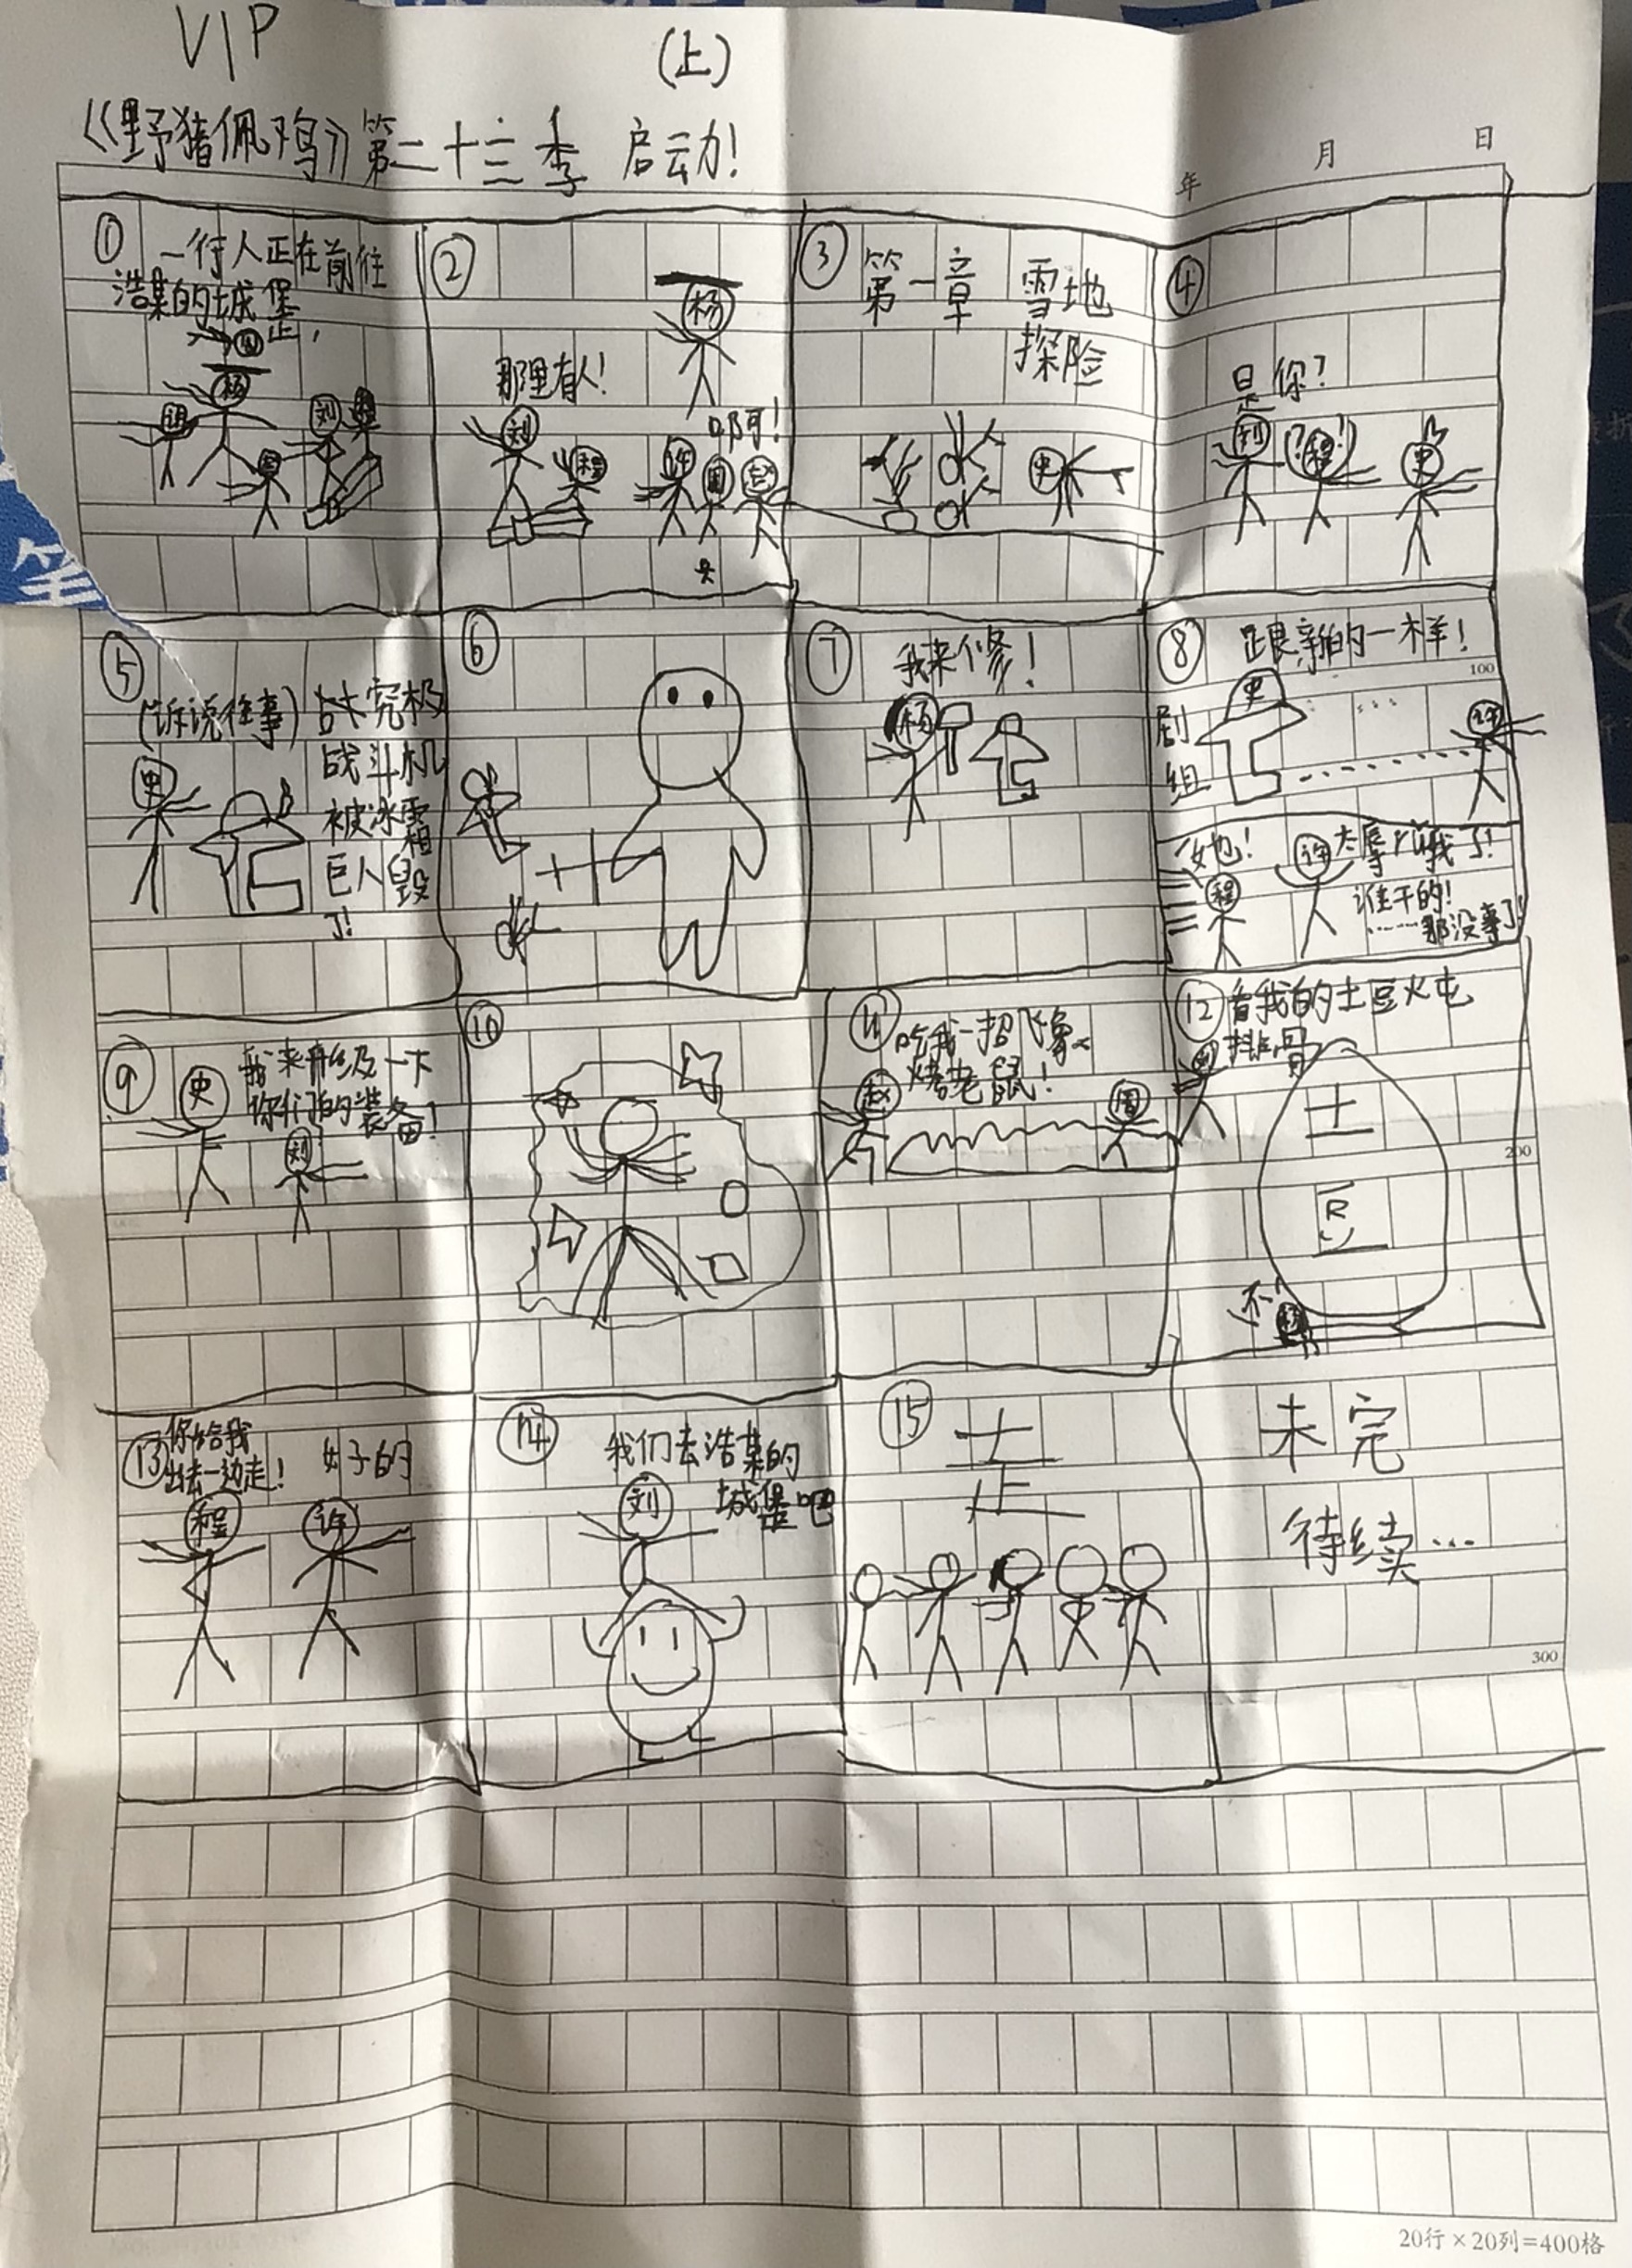 VIP
(上)
《野猪佩鸡》第二十三季 启动!
年 月 日
①
一行人正在前往
浩某的城堡,
杨
刘
②
杨
那里有人!
啊!
刘
程
许
周
赵
③
第一章 雪地
探险
史
④
是你?
刘
?程!
史
笔
⑤
(诉说往事)
战斗机
被冰霜
巨人毁
了!
史
⑥
⑦
我来修!
杨
⑧
跟新的一样!
100
史
剧
组
许
她!
程
许
太辱我了!
谁干的!
……那没事了!
⑨
史
我来升级一下
你们的装备!
刘
⑩
⑪
吃我一招飞象
烤老鼠!
赵
周
⑫
看我的土豆火屯
排骨
刘
土
豆
200
不!
杨
⑬
你给我
出去一边走!
好子的
程
许
⑭
我们去浩某的
城堡吧
刘
⑮
走
未完
待续…
300
20行×20列=400格